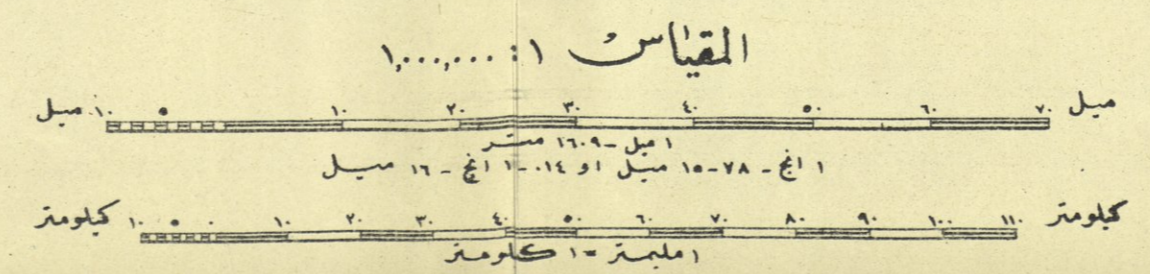 المقياس ١:١,٠٠٠,٠٠٠
ميل ١٠ ٥ ١٠ ٢٠ ٣٠ ٤٠ ٥٠ ٦٠ ٧٠ ميل
١ ميل - ١٦٠٩ متر
١ انج - ٧٨-١٥ ميل او ٠١٤-١ انج - ١٦ ميل
كيلومتر ١٠ ٥ ٠ ١٠ ٢٠ ٣٠ ٤٠ ٥٠ ٦٠ ٧٠ ٨٠ ٩٠ ١٠٠ ١١٠ كيلومتر
١ مليمتر = ١ كلومتر